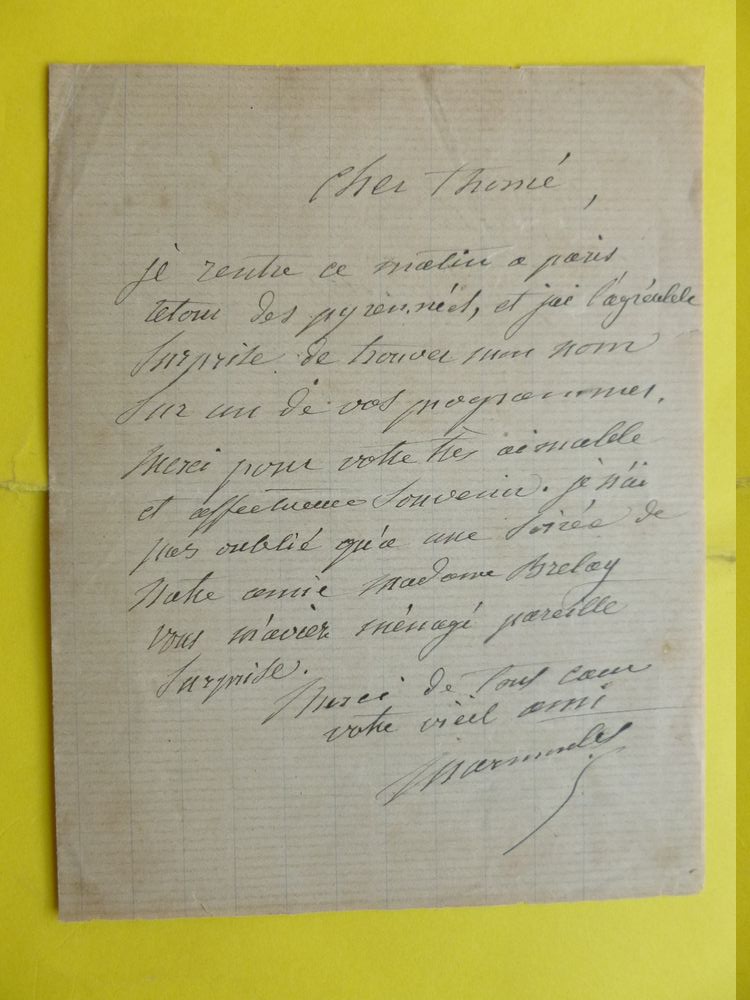 Cher Thomé,
je rentre ce matin a paris
retour des pyrennées, et j'ai l'agréable
surprise de trouver mon nom
sur un de vos programmes.
Merci pour votre très aimable
et affectueux souvenir. je n'ai
pas oublié qu'a une soirée de
Notre amie madame Brelay
vous m'aviez ménagé pareille
surprise.
Merci de tout cœur
votre vieil ami
Marmontel